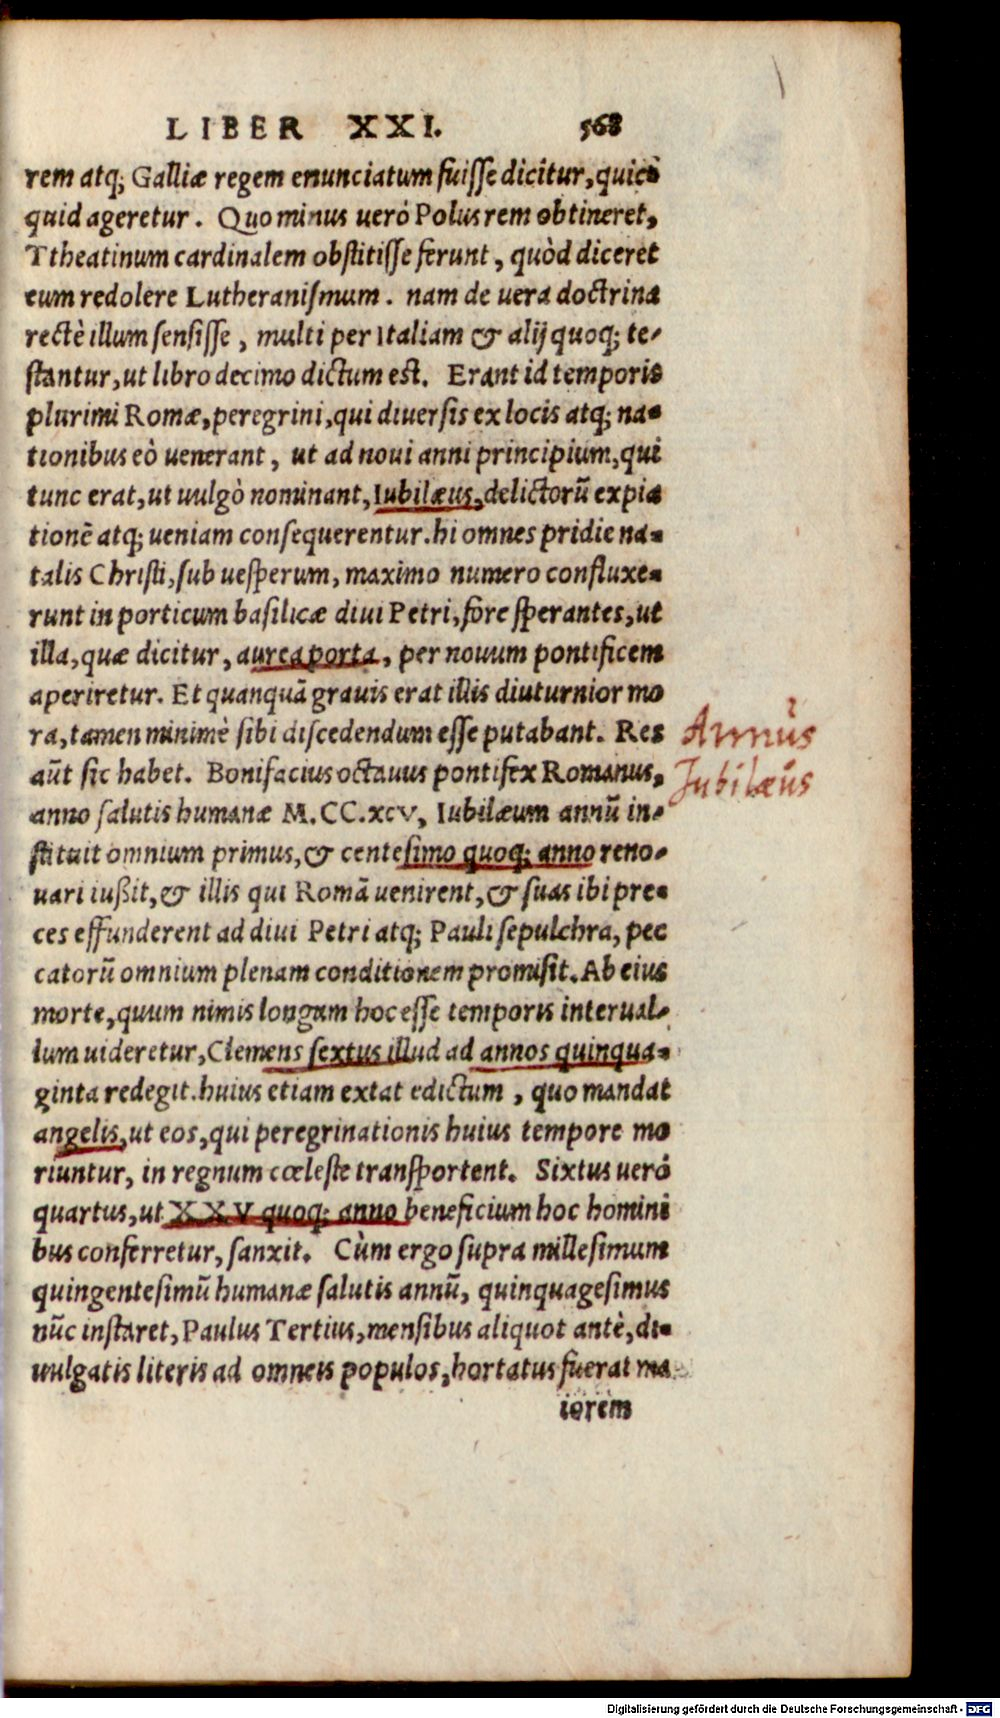 LIBER XXI. 568
rem atq; Galliæ regem enunciatum fuisse dicitur, quicꝙ
quid ageretur. Quo minus uerò Polus rem obtineret,
Ttheatinum cardinalem obstitisse ferunt, quòd diceret
eum redolere Lutheranismum. nam de uera doctrina
rectè illum sensisse, multi per Italiam & alij quoq; te-
stantur, ut libro decimo dictum est. Erant id temporis
plurimi Romæ, peregrini, qui diuersis ex locis atq; na-
tionibus eò uenerant, ut ad noui anni principium, qui
tunc erat, ut uulgò nominant, Iubilæus, delictorũ expia
tionẽ atq; ueniam consequerentur. hi omnes pridie na-
talis Christi, sub uesperum, maximo numero confluxe-
runt in porticum basilicæ diui Petri, fore sperantes, ut
illa, quæ dicitur, aurea porta, per nouum pontificem
aperiretur. Et quanquã grauis erat illis diuturnior mo
ra, tamen minimè sibi discedendum esse putabant. Res
aũt sic habet. Bonifacius octauus pontifex Romanus,
anno salutis humanæ M.CC.xcv, Iubilæum annũ in-
stituit omnium primus, & centesimo quoq; anno reno-
uari iußit, & illis qui Romã uenirent, & suas ibi pre-
ces effunderent ad diui Petri atq; Pauli sepulchra, pec
catorũ omnium plenam conditionem promisit. Ab eius
morte, quum nimis longum hoc esse temporis interual-
lum uideretur, Clemens sextus illud ad annos quinqua-
ginta redegit. huius etiam extat edictum, quo mandat
angelis, ut eos, qui peregrinationis huius tempore mo
riuntur, in regnum cœleste transportent. Sixtus uerò
quartus, ut XXV quoq; anno beneficium hoc homini
bus conferretur, sanxit. Cùm ergo supra millesimum
quingentesimũ humanæ salutis annũ, quinquagesimus
nũc instaret, Paulus Tertius, mensibus aliquot antè, di-
uulgatis literis ad omneis populos, hortatus fuerat ma
iorem
Annus
Iubilæus
Digitalisierung gefördert durch die Deutsche Forschungsgemeinschaft - DFG